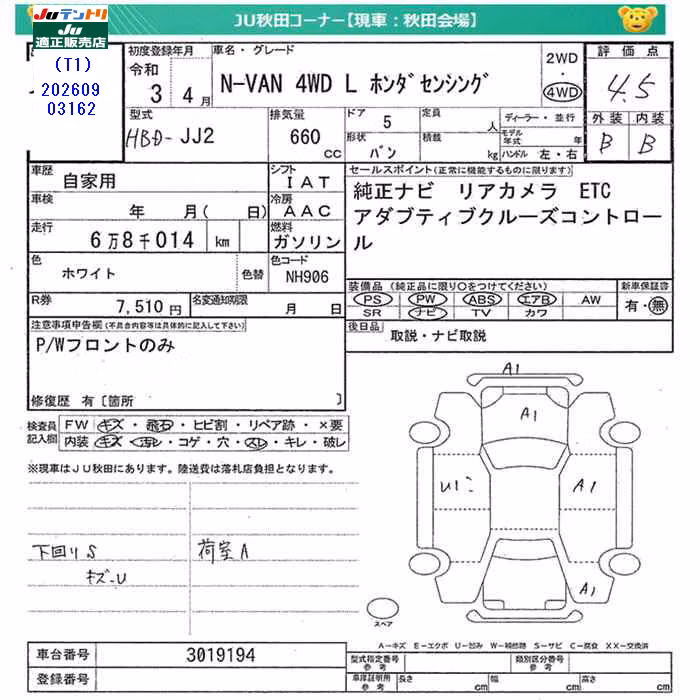 JUテントリ
JU適正販売店
JU秋田コーナー【現車：秋田会場】
(T1)
202609
03162
初度登録年月
令和
3 4月
車名・グレード
N-VAN 4WD L ホンダセンシング
2WD
・
4WD
評価点
4.5
外装 内装
B B
型式
HBD-JJ2
排気量
660
cc
ドア
5
形状
バン
定員
人
積載
kg
ディーラー・並行
モデル年式 年
ハンドル 左・右
車歴
自家用
シフト
IAT
車検
年 月( 日)
冷房
AAC
走行
6万8千014 km
燃料
ガソリン
色
ホワイト
色替
色コード
NH906
R券
7,510円
名変通知期限
月 日
セールスポイント(正常に機能するものに限ります)
純正ナビ リアカメラ ETC
アダプティブクルーズコントロー
ル
装備品(純正品に限り○をつけてください)
PS PW ABS エアB AW
SR ナビ TV カワ
新車保証書
有・無
後日品
取説・ナビ取説
注意事項申告欄(不具合内容等は具体的に記入して下さい)
P/Wフロントのみ
修復歴 有〔箇所 〕
検査員
記入欄
FW キズ・飛石・ヒビ割・リペア跡・×要
内装 キズ・汚れ・コゲ・穴・スレ・キレ・破レ
※現車はJU秋田にあります。陸送費は落札店負担となります。
下回りS
キズ-U
荷室A
A1
A1
U1
A1
A1
スペア
A－キズ E－エクボ U－凹み W－補修跡 S－サビ C－腐食 XX－交換済
車台番号
3019194
登録番号
型式指定番号
参考
類別区分番号
参考
車庫証明用
参考
長さ cm
幅 cm
高さ cm